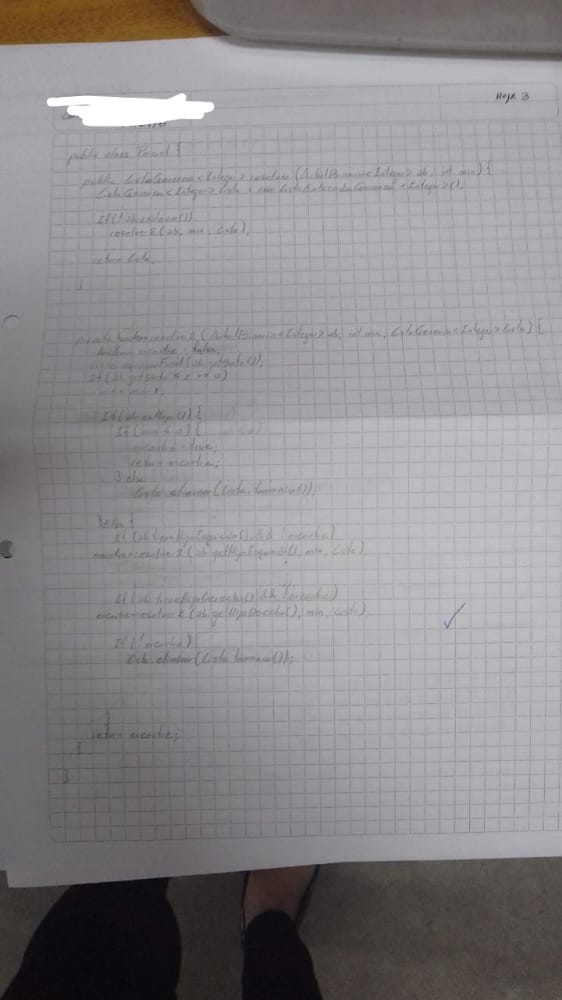 Hoja 3
public class Parcial {
public ListaGenerica<Integer> resolver (ArbolBinario<Integer> ab, int min) {
ListaGenerica<Integer> lista = new ListaEnlazadaGenerica<Integer>();
If(!ab.esVacio())
resolver2(ab, min, lista);
return lista;
}
private boolean resolver2 (ArbolBinario<Integer> ab, int min, ListaGenerica<Integer> lista) {
boolean encontre = false;
lista.agregarFinal(ab.getDato());
If(ab.getDato % 2 == 0)
If(ab.esHoja()) {
If(min ≤ 0) {
encontre = true;
return encontre;
} else
lista.eliminar(lista.tamanio());
}else {
If(ab.tieneHijoIzquierdo() && !encontre)
encontre=resolver2(ab.getHijoIzquierdo(), min, lista);
If(ab.tieneHijoDerecho() && !encontre)
encontre=resolver2(ab.getHijoDerecho(), min, lista);
If(!encontre)
lista.eliminar(lista.tamanio());
}
return encontre;
}
}